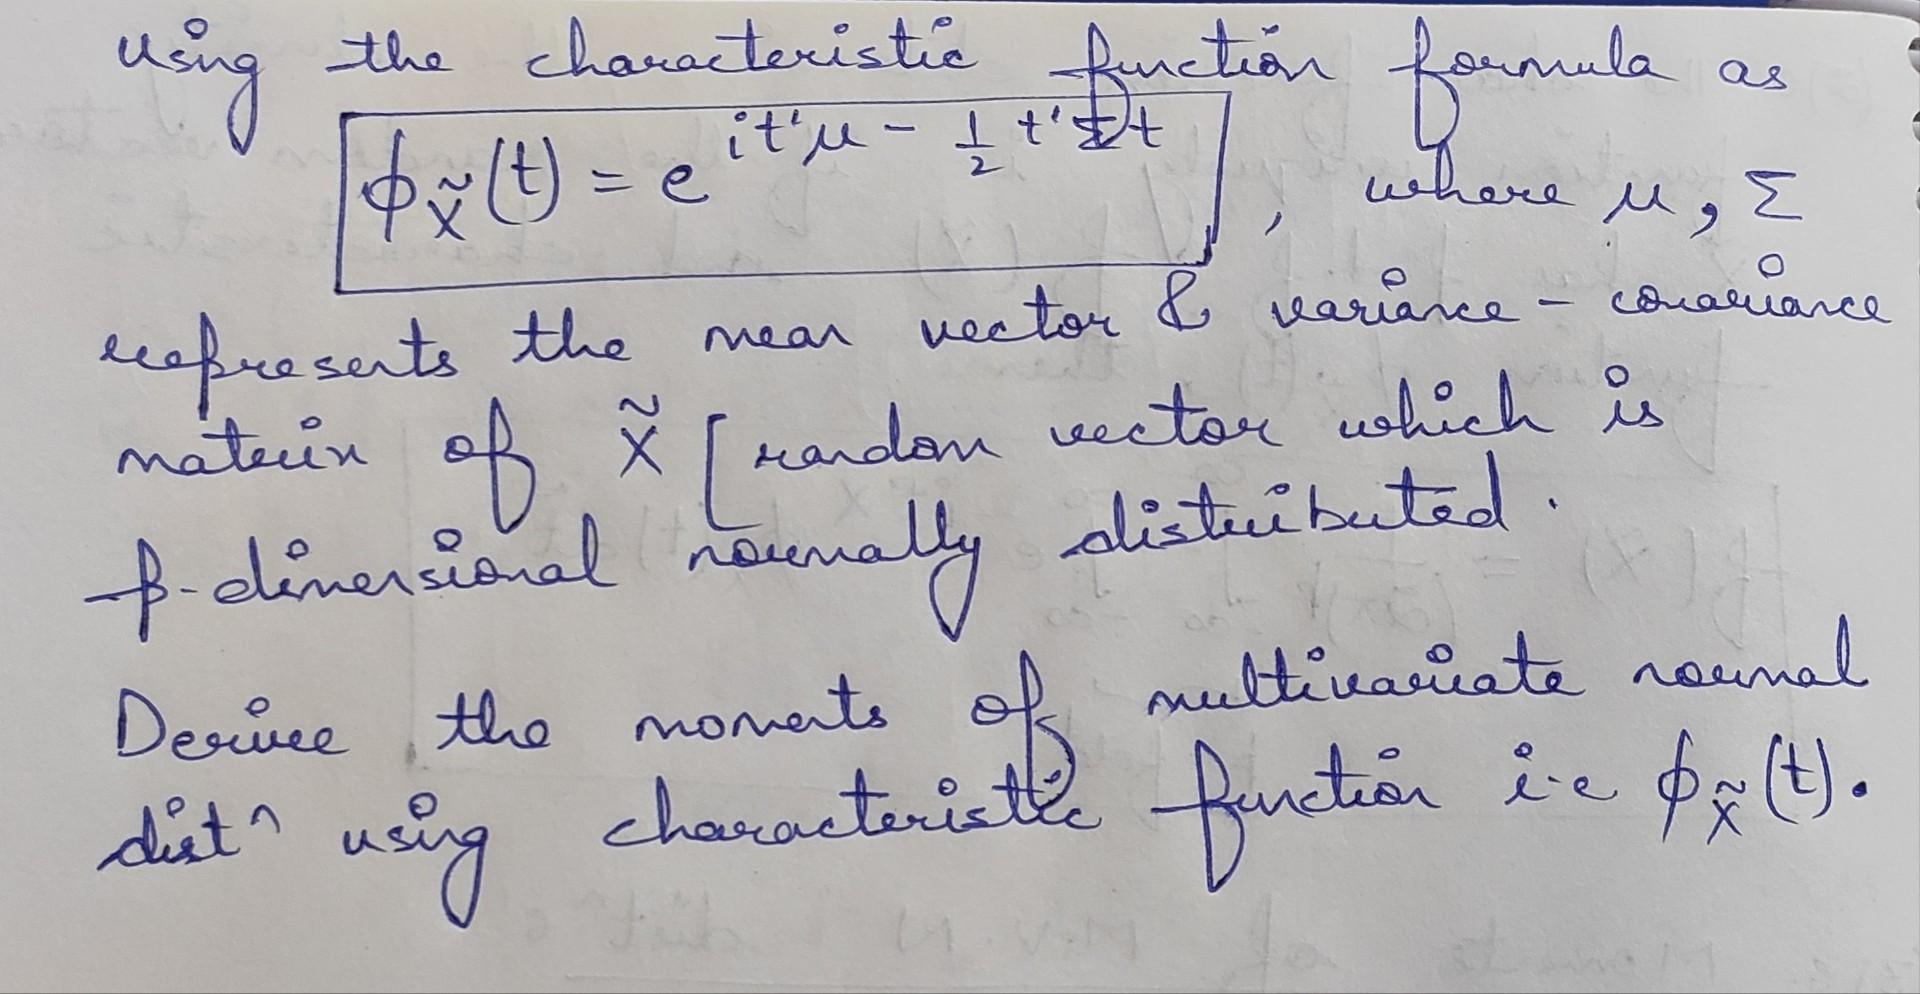 using the characteristic function formula as
ϕ_X̃(t) = e^{it'μ - 1/2 t'Σt}, where μ, Σ
represents the mean vector & variance - covariance
matrix of X̃ [random vector which is
p-dimensional normally distributed.
Derive the moments of multivariate normal
distⁿ using characteristic function i.e ϕ_X̃(t).